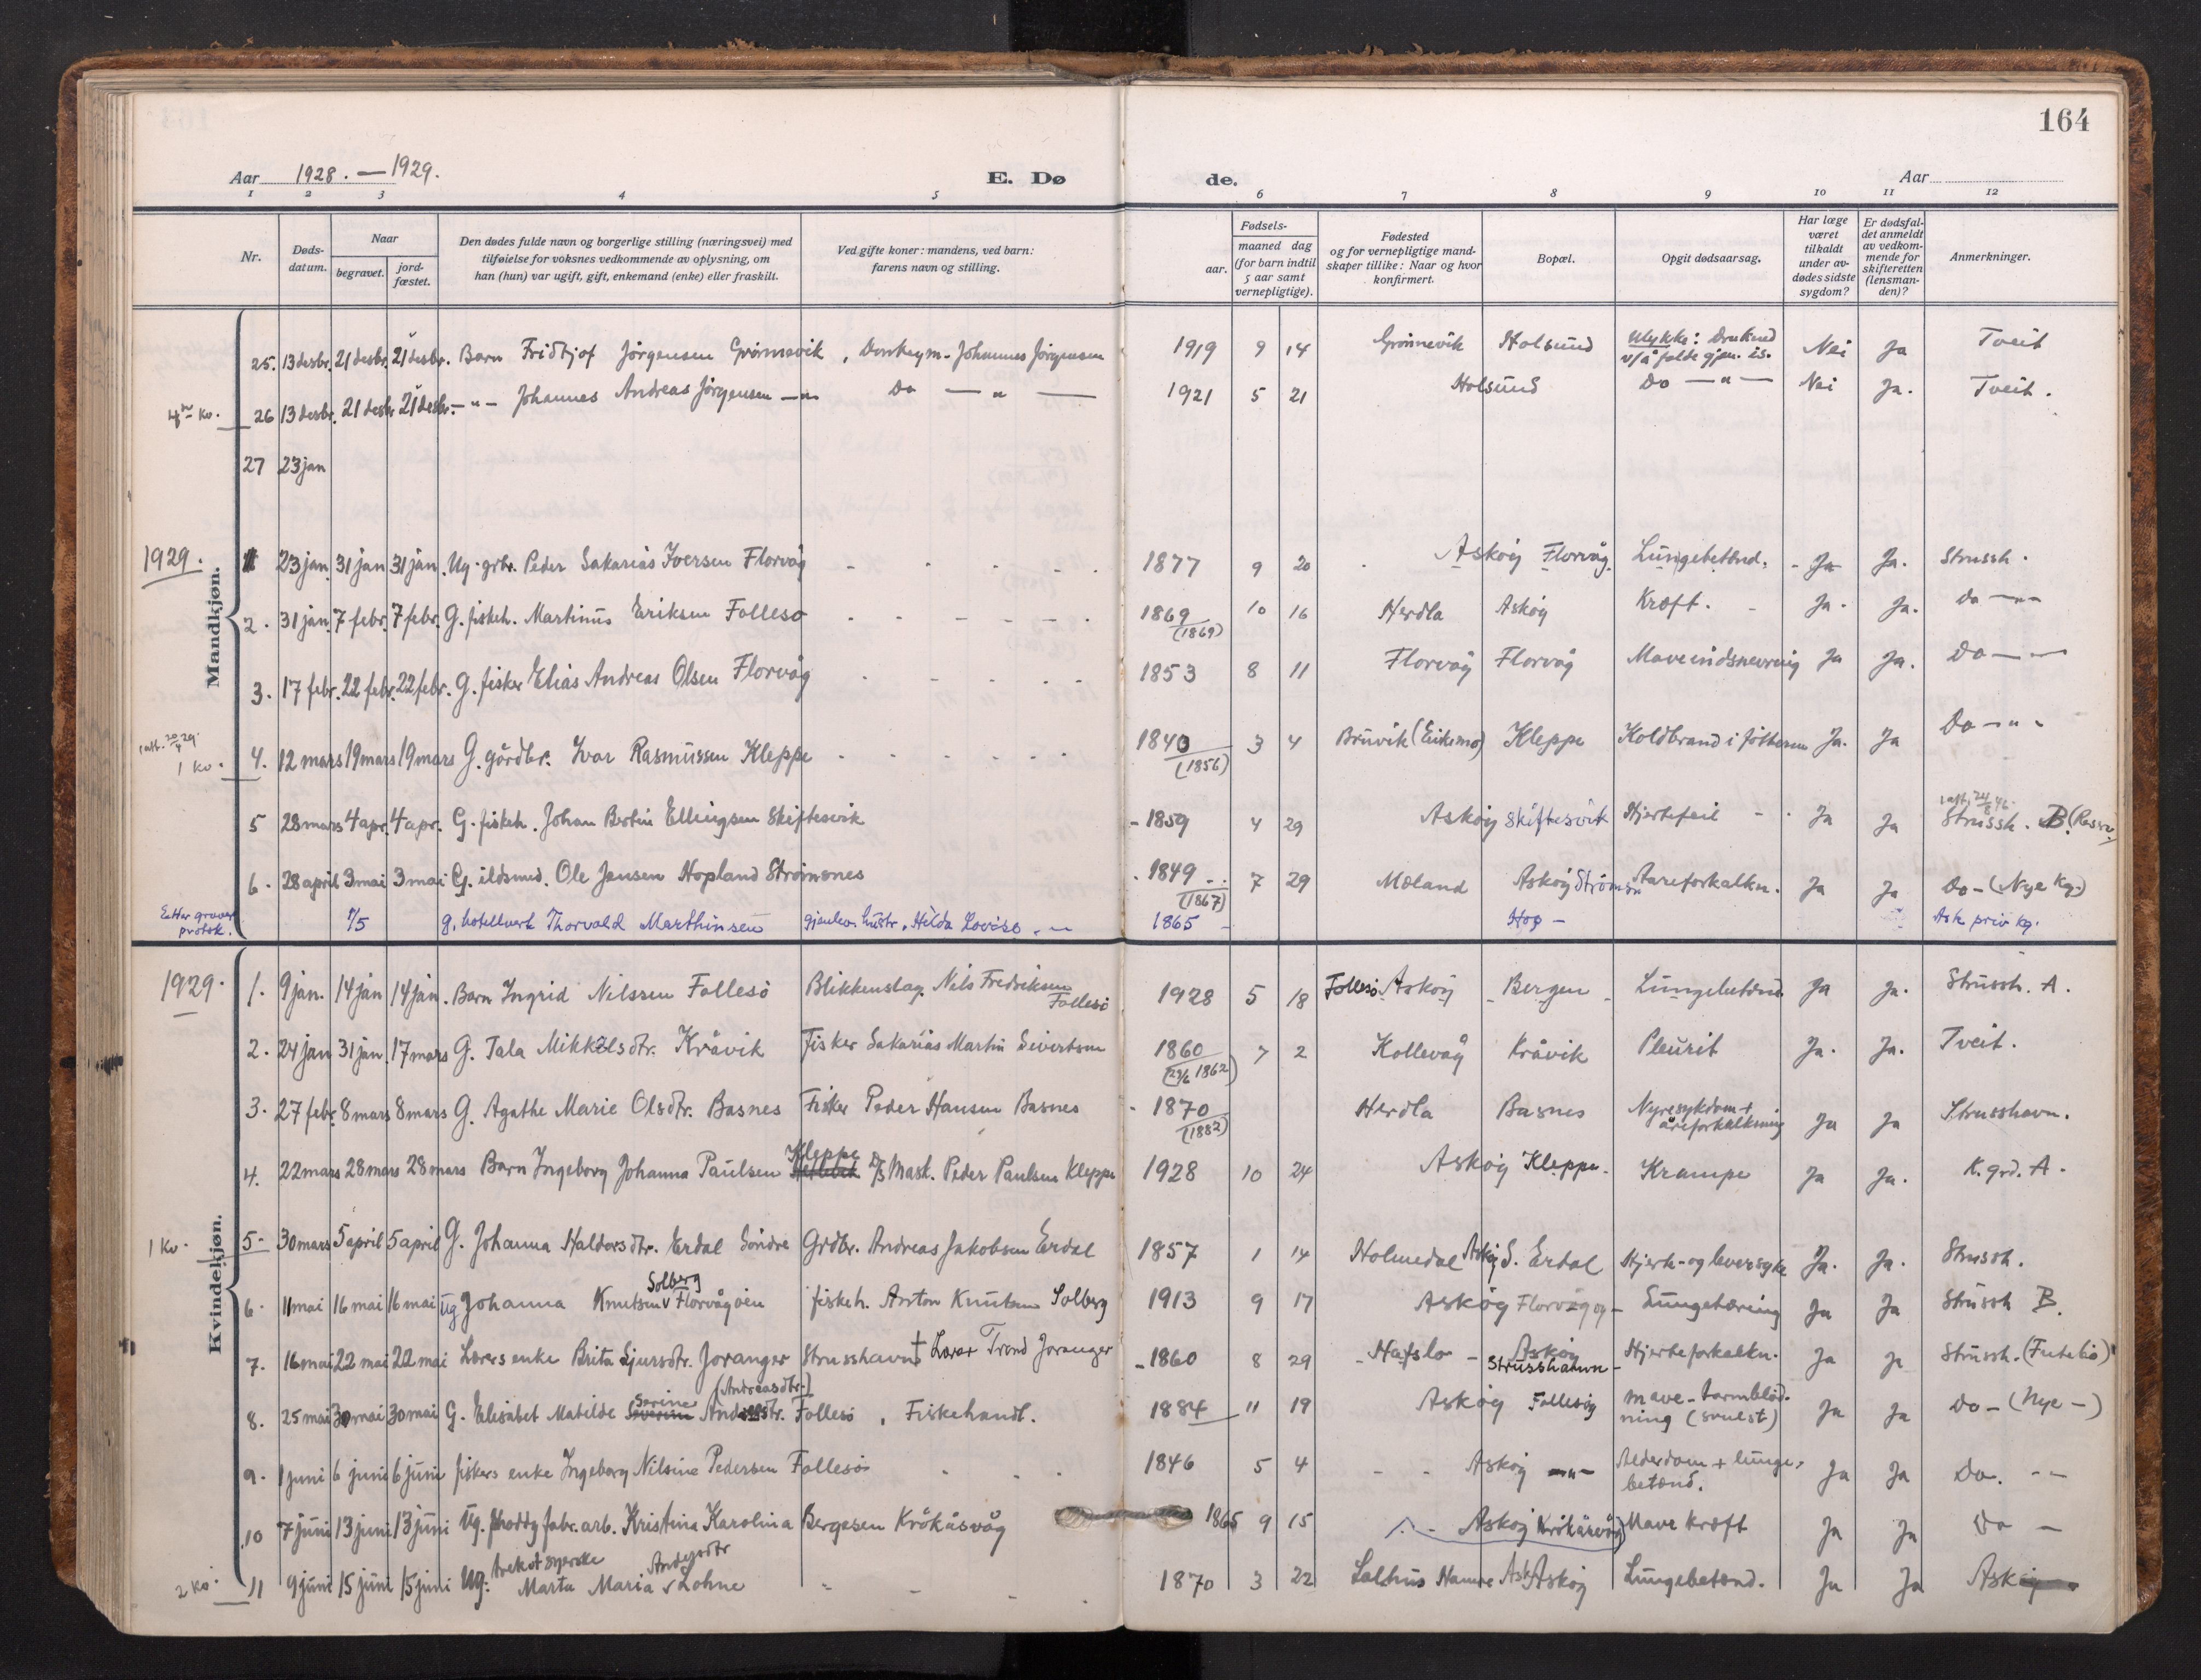 164
Aar 1928. — 1929. E. Dø de. Aar
1 2 3 4 5 6 7 8 9 10 11 12
Nr. Døds-datum. Naar begravet. jord-fæstet. Den dødes fulde navn og borgerlige stilling (næringsvei) med tilføielse for voksnes vedkommende av oplysning, om han (hun) var ugift, gift, enkemand (enke) eller fraskilt. Ved gifte koner: mandens, ved barn: farens navn og stilling. Fødsels- aar. maaned dag (for barn indtil 5 aar samt vernepligtige). Fødested og for vernepligtige mand-skaper tillike: Naar og hvor konfirmert. Bopæl. Opgit dødsaarsag. Har læge været tilkaldt under av-dødes sidste sygdom? Er dødsfal-det anmeldt av vedkom-mende for skifteretten (lensman-den)? Anmerkninger.
Mandkjøn.
25. 13 desbr. 21 desbr. 21 desbr. Barn Fridtjof Jörgensen Grönnevik, Donkeym. Johannes Jörgensen 1919 9 14 Grönnevik Holsund Ulykke: Druknd v/å falde gjen. is. Nei Ja Tveit
4de kv. 26 13 desbr. 21 desbr 21 desbr. – " – Johannes Andreas Jörgensen – " Do – " – 1921 5 21 Holsund Do – " – Nei Ja. Tveit.
27 23 jan
1929. 1 23 jan. 31 jan 31 jan. Ug. grbr. Peder Sakarias Iversen Florvåg 1877 9 20 Askøy Florvåg. Lungebetænd. Ja Ja. Strussh.
2. 31 jan. 7 febr. 7 febr. G. fiskeh. Martinus Eriksen Follesø 1869 (1869) 10 16 Herdla Askøy Kræft. Ja. Ja. Do – " –
3. 17 febr. 22 febr. 22 febr. G. fisker Elias Andreas Olsen Florvåg 1853 8 11 Florvåg Florvåg Maveindsnevring Ja Ja. Do – " –
1 att. 20/4 29. 1 kv. 4. 12 mars 19 mars 19 mars G. gårdbr. Ivar Rasmussen Kleppe 1840 (1856) 3 4 Bruvik (Eikemo) Kleppe Koldbrand i föttene Ja. Ja Do – " –
5 28 mars 4 apr. 4 apr. G. fiskeh. Johan Bertin Ellingsen Skiftesvik 1859 4 29 Askøy Skiftesvik Hjertefeil Ja Ja Strussh. B.
6. 28 april 3 mai 3 mai G. ildsmed. Ole Jansen Hopland Strömsnes 1849 (1867) 7 29 Mæland Askøy Strömsn Aareforkalkn. Ja Ja Do – (Nye kg.)
Efter graver protok. 1/5 g. hotellvert Thorvald Marthinsen gjenlev. hustr. Hilda Lovise 1865 Hop – Ask priv kg.
Kvindekjøn.
1929. 1. 9 jan. 14 jan 14 jan. Barn Ingrid Nilssen Follesö Blikkenslag. Nils Fredriksen Follesö 1928 5 18 Follesö Askøy Bergen Lungebetænd. Ja Ja. Strussh. A.
2. 24 jan 31 jan. 17 mars G. Tala Mikkelsdtr. Kråvik Fisker Sakarias Martin Sivertsen 1860 (29/6 1862) 7 2 Kollevåg Kråvik Pleurit Ja. Ja. Tveit.
3. 27 febr. 8 mars 8 mars G. Agathe Marie Olsdtr. Basnes Fisker Peder Hansen Basnes 1870 (1882) Herdla Basnes Nyresykdom + åreforkalkning Ja Ja Strusshavn.
4. 22 mars 28 mars 28 mars Barn Ingeborg Johanna Paulsen Kleppe D/S Mask. Peder Paulsen Kleppe 1928 10 24 Askøy Kleppe. Krampe Ja Ja. K. grd. A.
1 kv. 5. 30 mars 5 april 5 april G. Johanna Haldorsdtr. Erdal Söndre Grdbr. Andreas Jakobsen Erdal 1857 1 14 Holmedal Askøy S. Erdal Hjerte- og leversyke Ja. Ja. Strussh.
6. 11 mai 16 mai 16 mai ug Johanna Knutsen Solberg Florvågöen fiskeh. Anton Knutsen Solberg 1913 9 17 Askøy Florvågøy Lungetæring Ja Ja Strussh B.
7. 16 mai 22 mai 22 mai Lærers enke Brita Sjursdtr. Joranger Strusshavn † Lærer Trond Joranger 1860 8 29 Hafslo Askøy Strusshamn Hjerteforkalkn. Ja Ja Strussh.
8. 25 mai 30 mai 30 mai G. Elisabet Matilde Severine Serine Andersdtr. (Andreasdtr.) Follesö, Fiskehandl. 1884 11 19 Askøy Follesøy mave-tarmblödning (svulst) Ja Ja Do – (Nye –)
9. 1 juni 6 juni 6 juni fiskers enke Ingeborg Nilsine Pedersen Follesö 1846 5 4 Askøy – " – Alderdom + lungebetænd. Ja Ja Do.
10 7 juni 13 juni 13 juni Ug. shoddyfabr. arb. Kristina Karolina Bergesen Krökåsvåg 1865 9 15 Askøy Krökåsvåg Mave kræft Ja Ja Do –
2 kv. 11 9 juni 15 juni 15 juni Ug. trekotsyerske Marta Maria Andersdtr Lohne 1870 3 22 Salhus Hamre Ask Askøy Lungebetænd. Ja Ja Ask